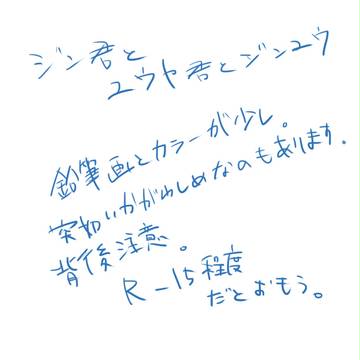 ジン君と
ユウヤ君とジンユウ
鉛筆画とカラーが少し。
突如いかがわしめなのもあります.
背後注意。
R-15程度
だとおもう。